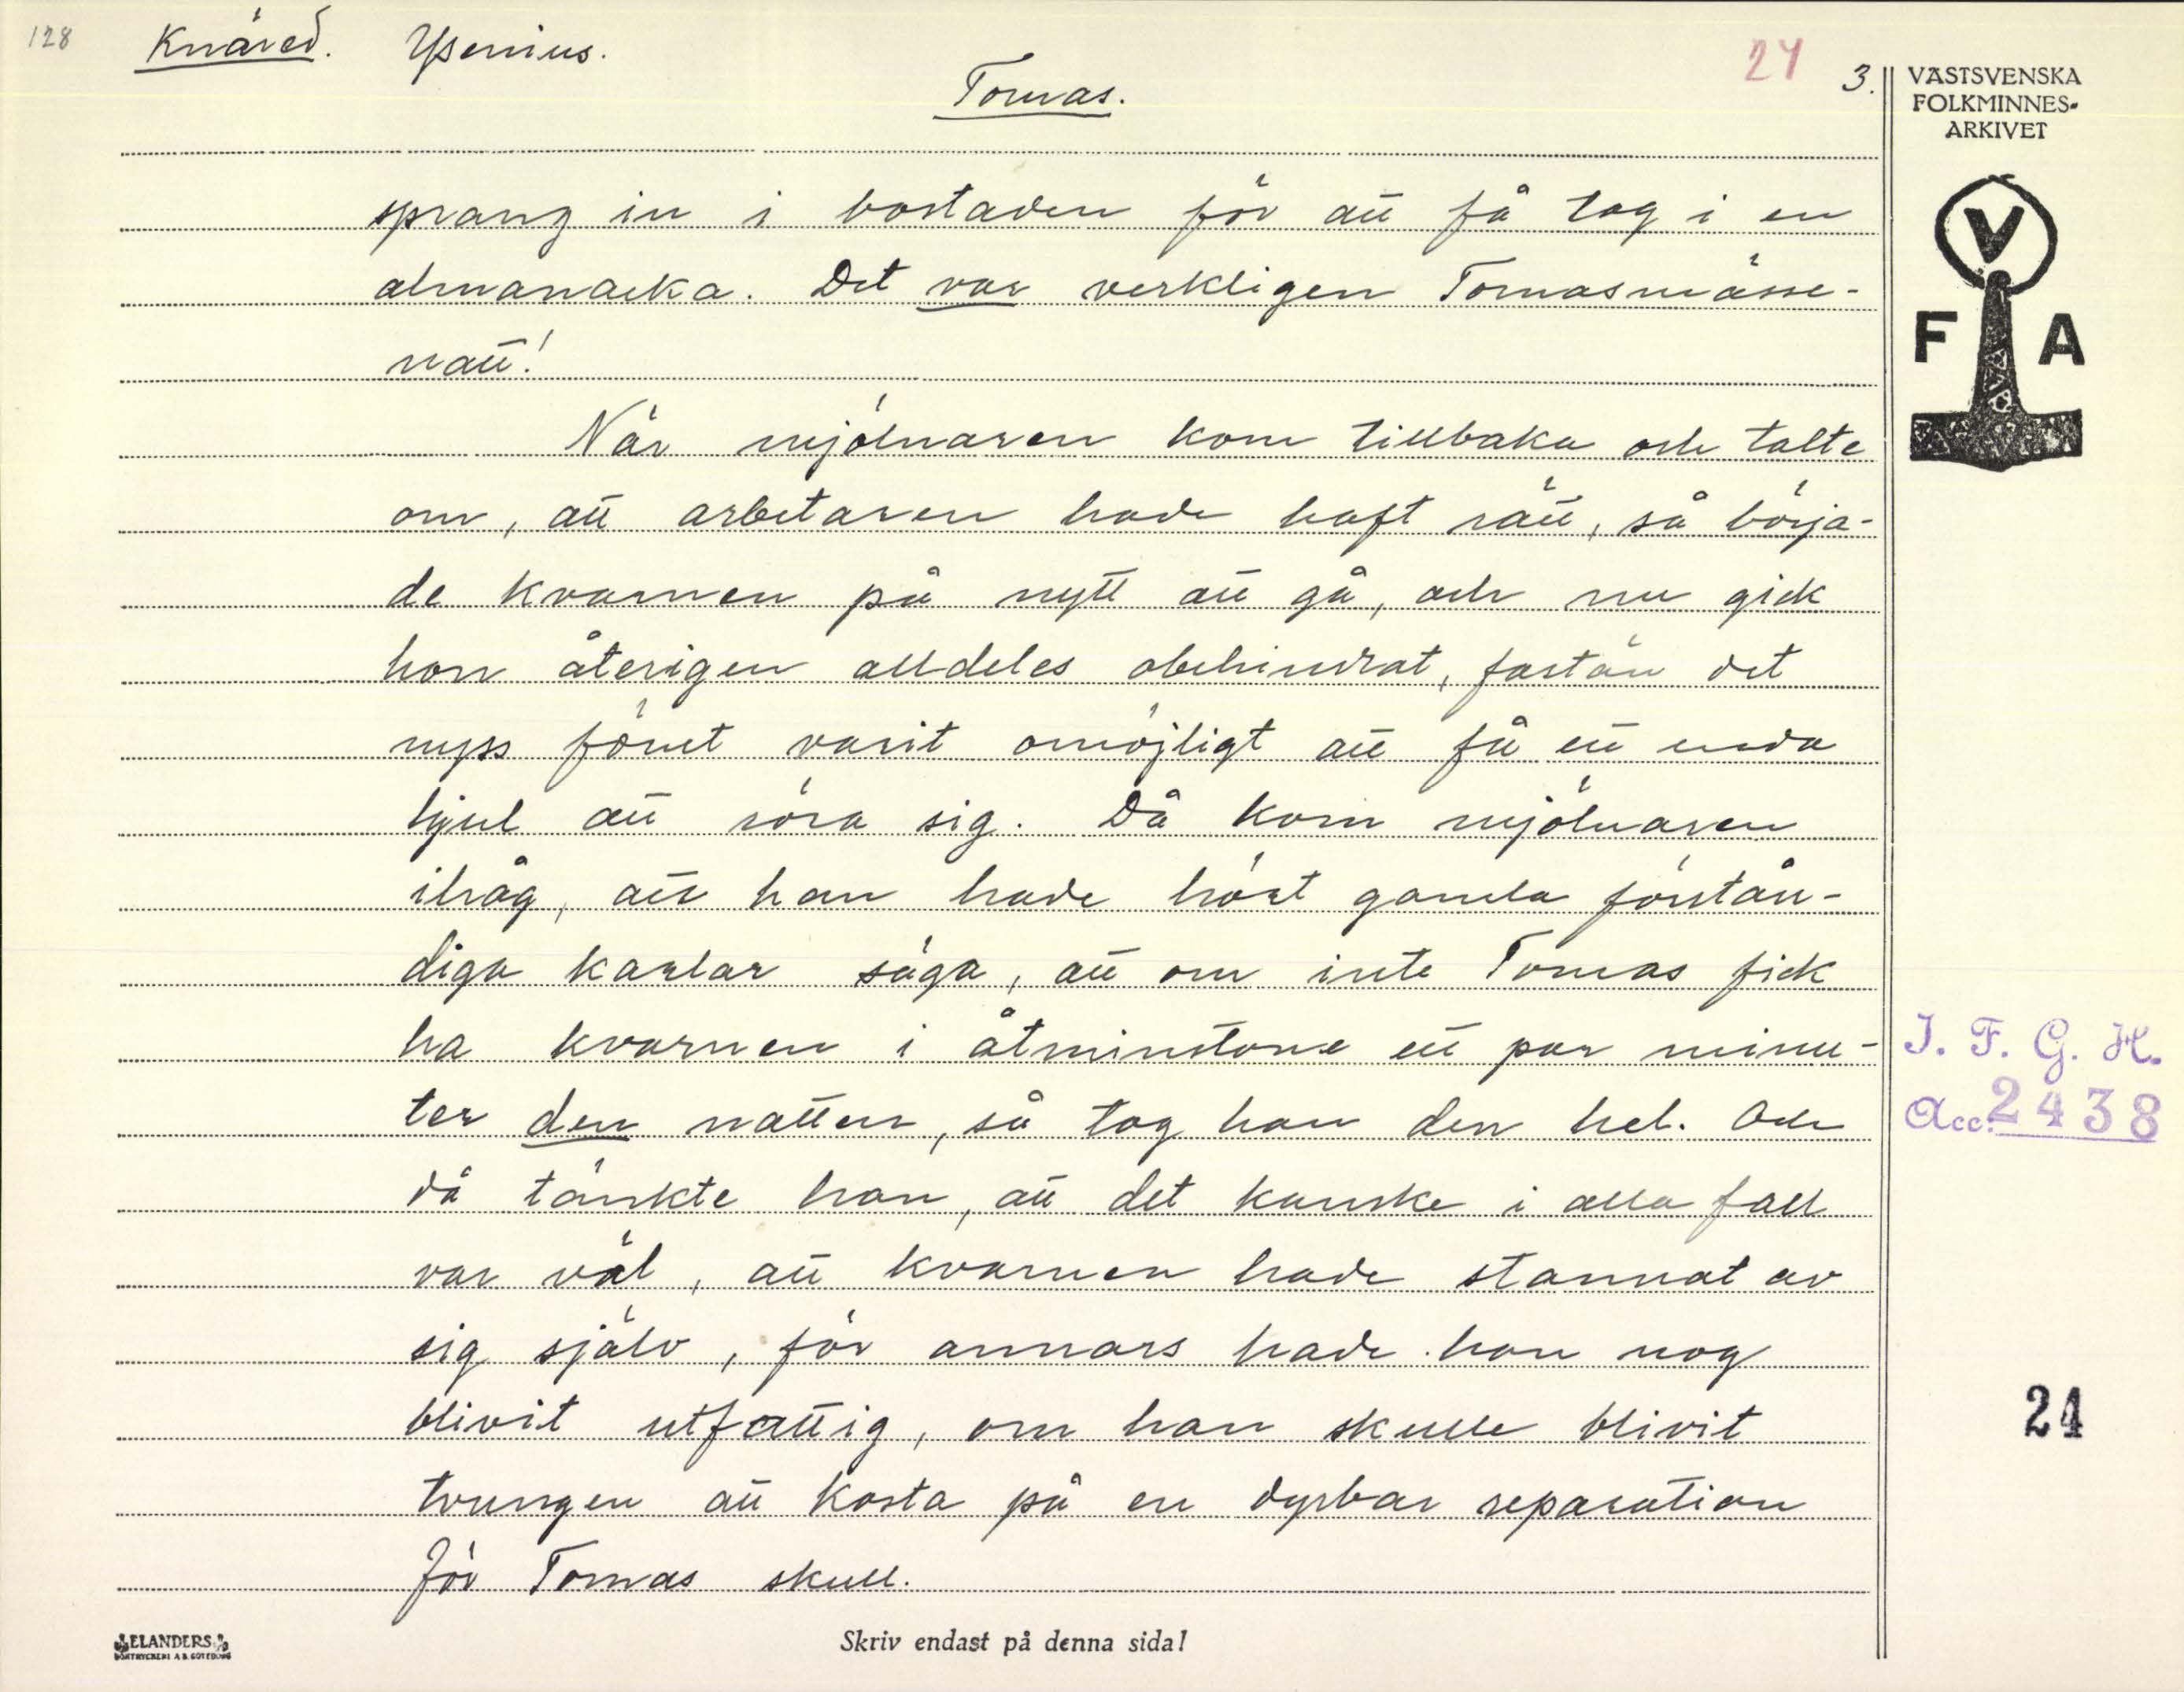 128 Knäred. Ysenius. 24 3.
Tomas.
sprang in i bostaden för att få tag i en
almanacka. Det var verkligen Tomasmässe-
natt!
När mjölnaren kom tillbaka och talte
om, att arbetaren hade haft rätt, så börja-
de kvarnen på nytt att gå, och nu gick
hon återigen alldeles obehindrat, fastän det
nyss förut varit omöjligt att få ett enda
hjul att röra sig. Då kom mjölnaren
ihåg, att han hade hört gamla förstån-
diga karlar säga, att om inte Tomas fick
ha kvarnen i åtminstone ett par minu-
ter den natten, så tog han den hel. Och
då tänkte han, att det kanske i alla fall
var väl, att kvarnen hade stannat av
sig själv, för annars hade han nog
blivit utfattig, om han skulle blivit
tvungen att kosta på en dyrbar reparation
för Tomas skull.
VÄSTSVENSKA
FOLKMINNES-
ARKIVET
V
F A
I. F. G. H.
Acc. 2438
24
ELANDERS
BOKTRYCKERI A.B. GÖTEBORG
Skriv endast på denna sida!